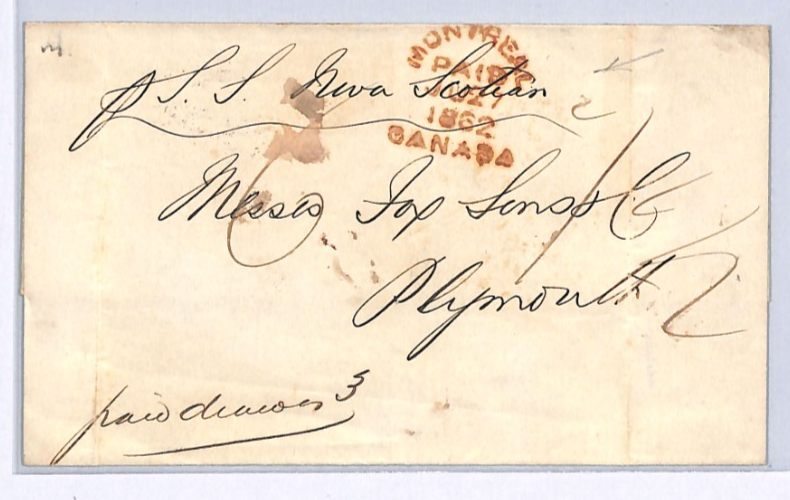 MONTREAL
PAID
27
1862
CANADA
p S. S. Nova Scotian
Messrs Fox Sons & Co
Plymouth
paid drawer 3